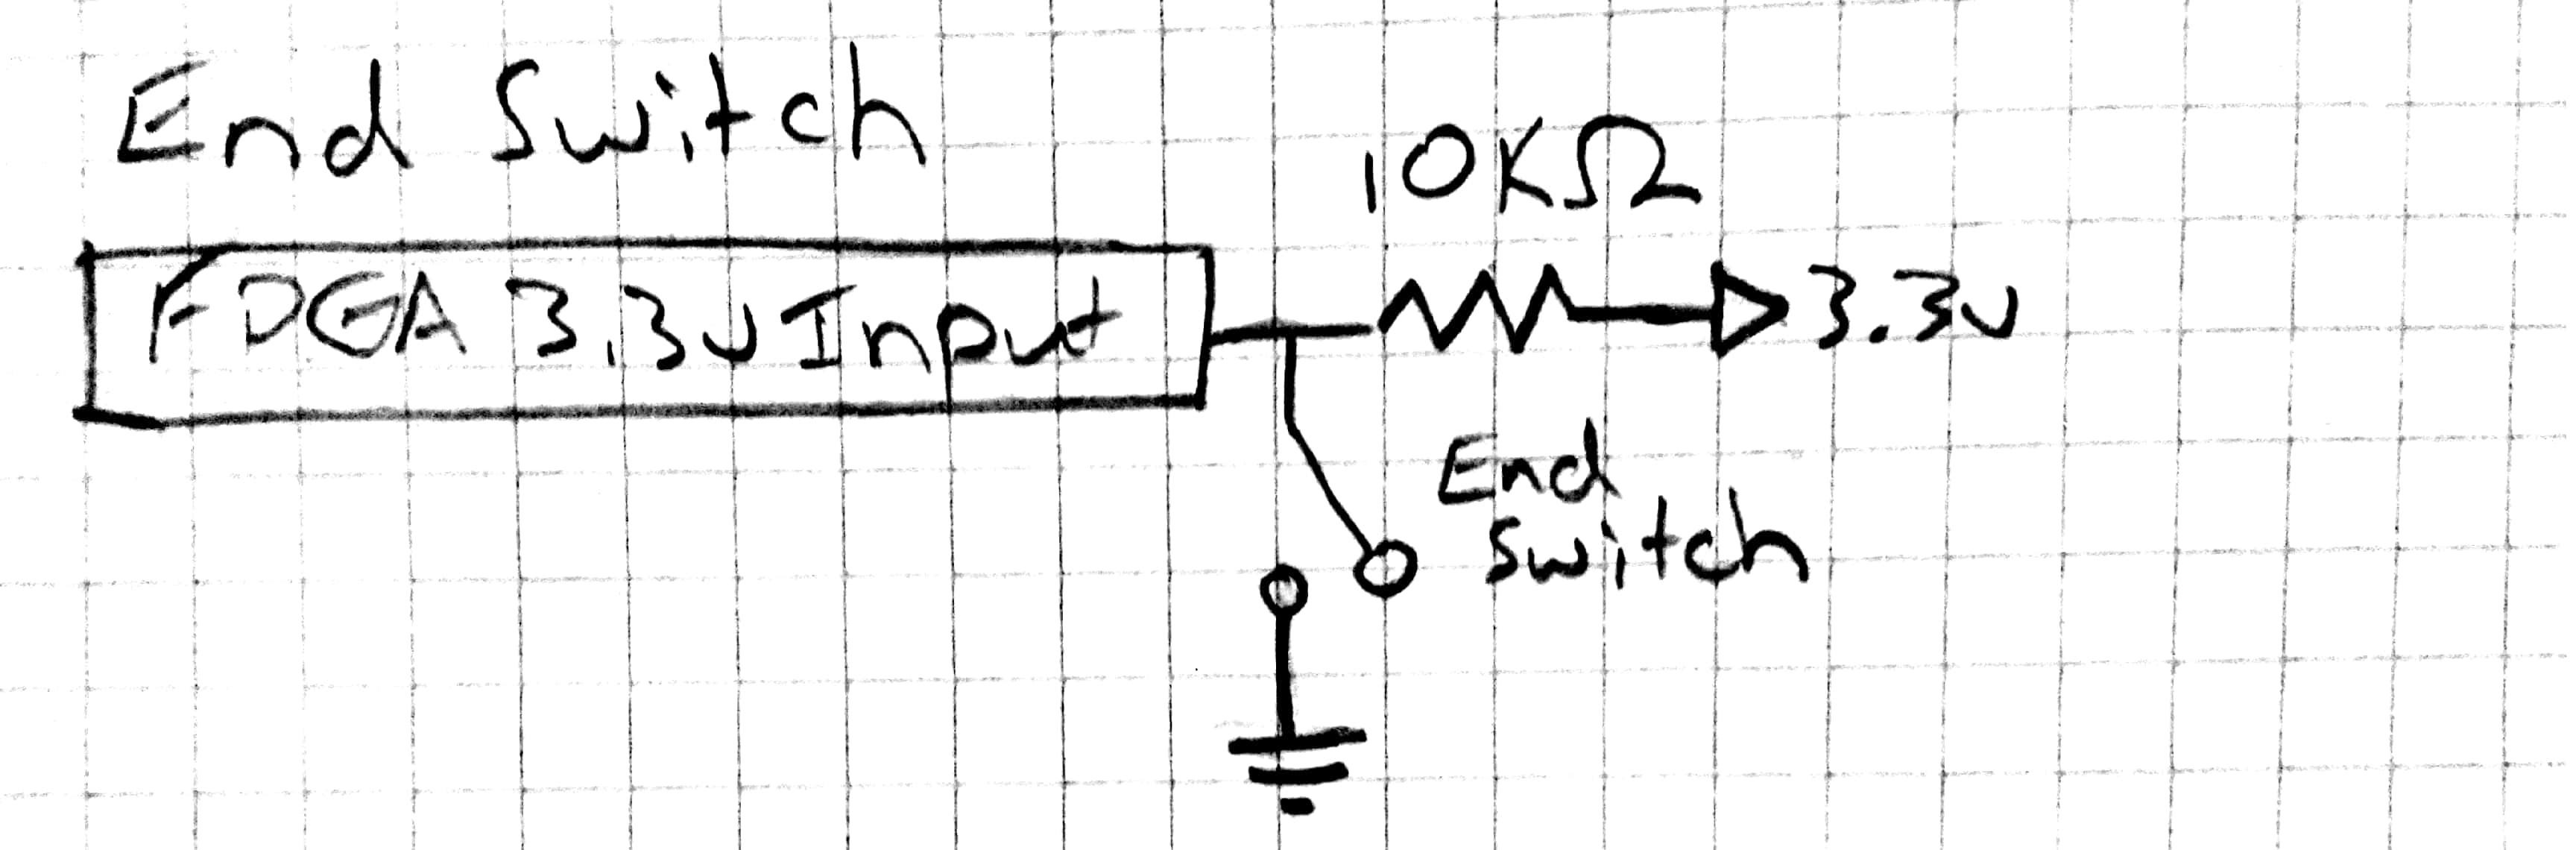 End Switch
10KΩ
FPGA 3.3v Input
3.3v
End
Switch